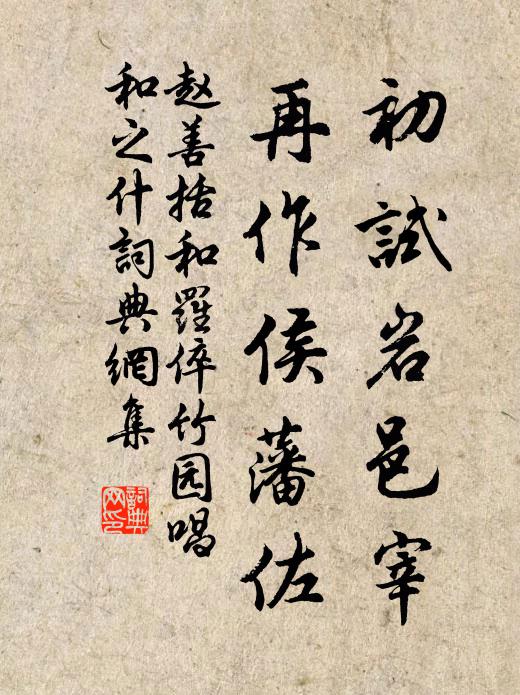 初試岩邑宰
再作侯藩佐
赵善括和羅倅竹园唱
和之什詞典網集
詞典网印